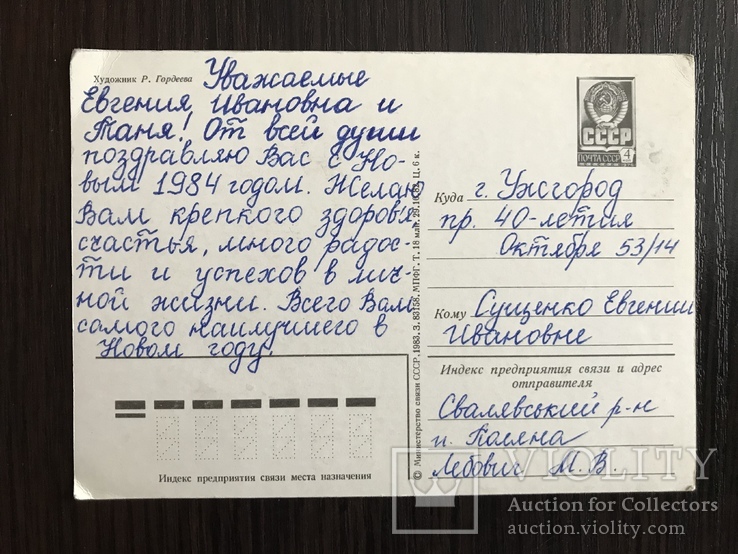 Художник Р. Гордеева
Уважаемые
Евгения Ивановна и
Таня! От всей души
поздравляю Вас с Но-
вым 1984 годом. Желаю
Вам крепкого здоровья,
счастья, много радос-
ти и успехов в лич-
ной жизни. Всего Вам
самого наилучшего в
Новом году.
Индекс предприятия связи места назначения
© Министерство связи СССР, 1983. З. 83158. МПФГ. Т. 18 млн. Ц. 6 к.
СССР
ПОЧТА СССР 4
Куда г. Ужгород
пр. 40-летия
Октября 53/14
Кому Сущенко Евгении
Ивановне
Индекс предприятия связи и адрес
отправителя
Свалявський р-н
п. Поляна
Лебович М. В.
VIOLITY
Auction for Collectors
auction.violity.com